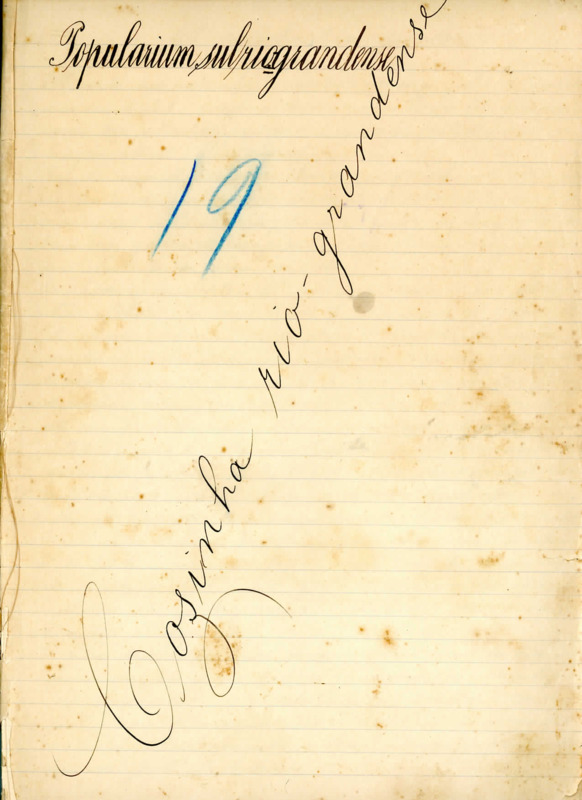 Popularium sulriograndense
19
Cozinha rio-grandense